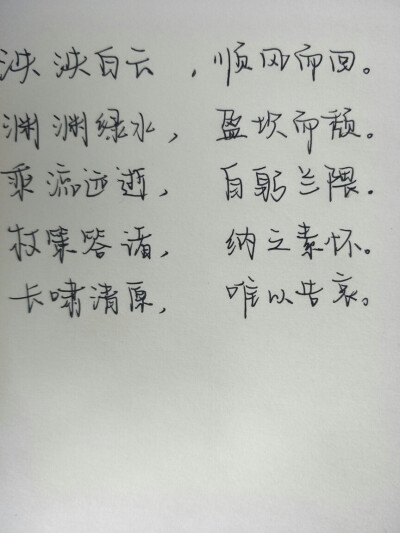 泱泱白云，顺风而回。
渊渊绿水，盈坎而颓。
乘流远逝，自躬兰隈。
杖策答诸，纳之素怀。
长啸清原，唯以告哀。